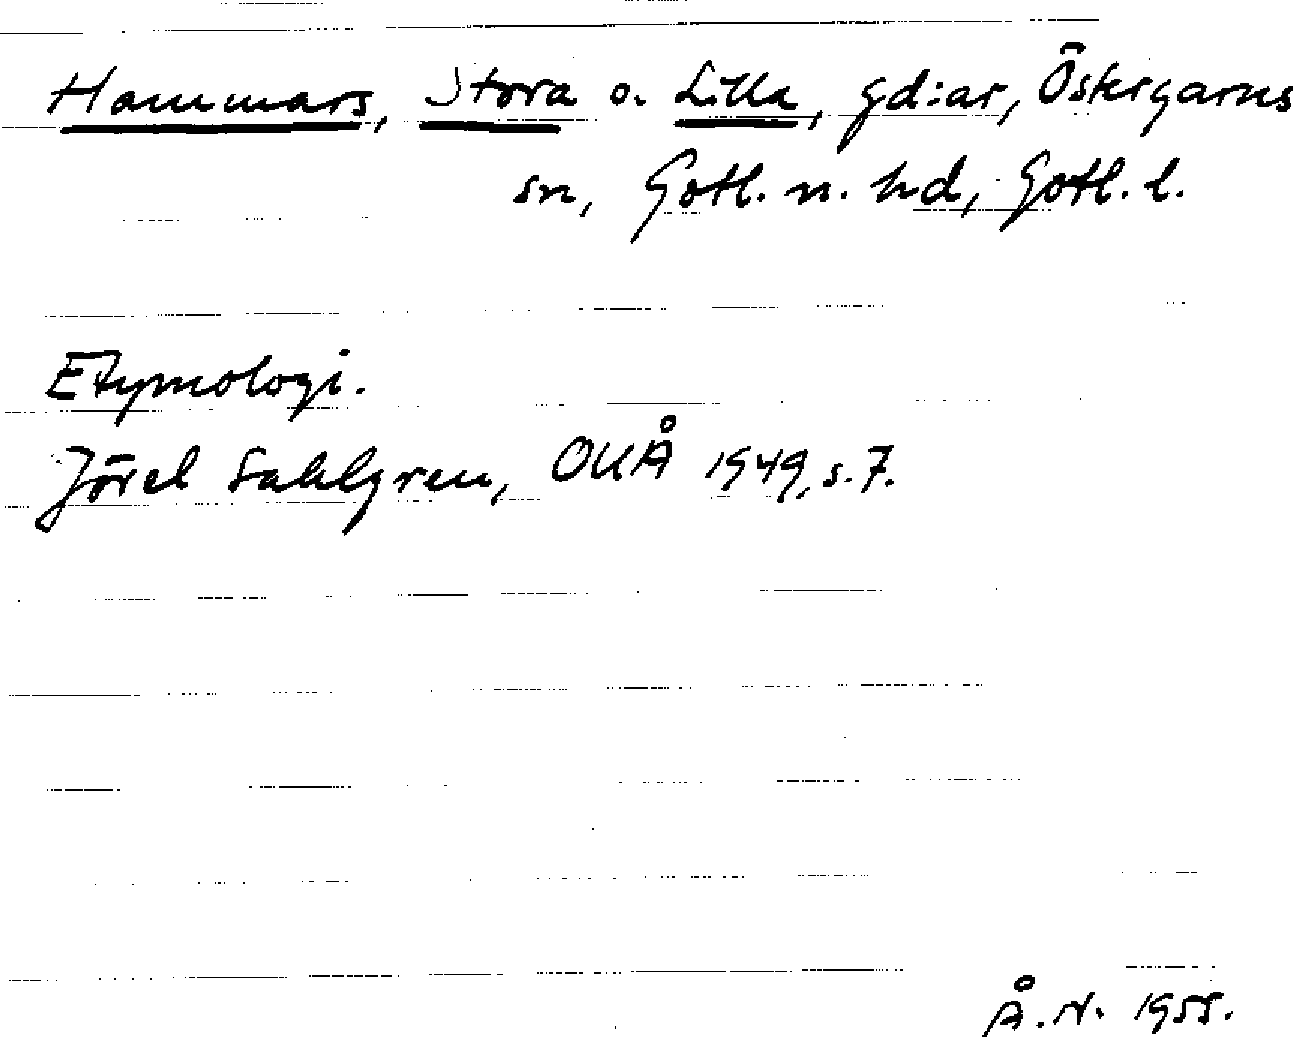 Hammars, Stora o. Lilla, gd:ar, Östergarns
sn, Gotl. n. hd, Gotl. l.
Etymologi.
Jöran Sahlgren, OUÅ 1949, s. 7.
Å. N. 1955.